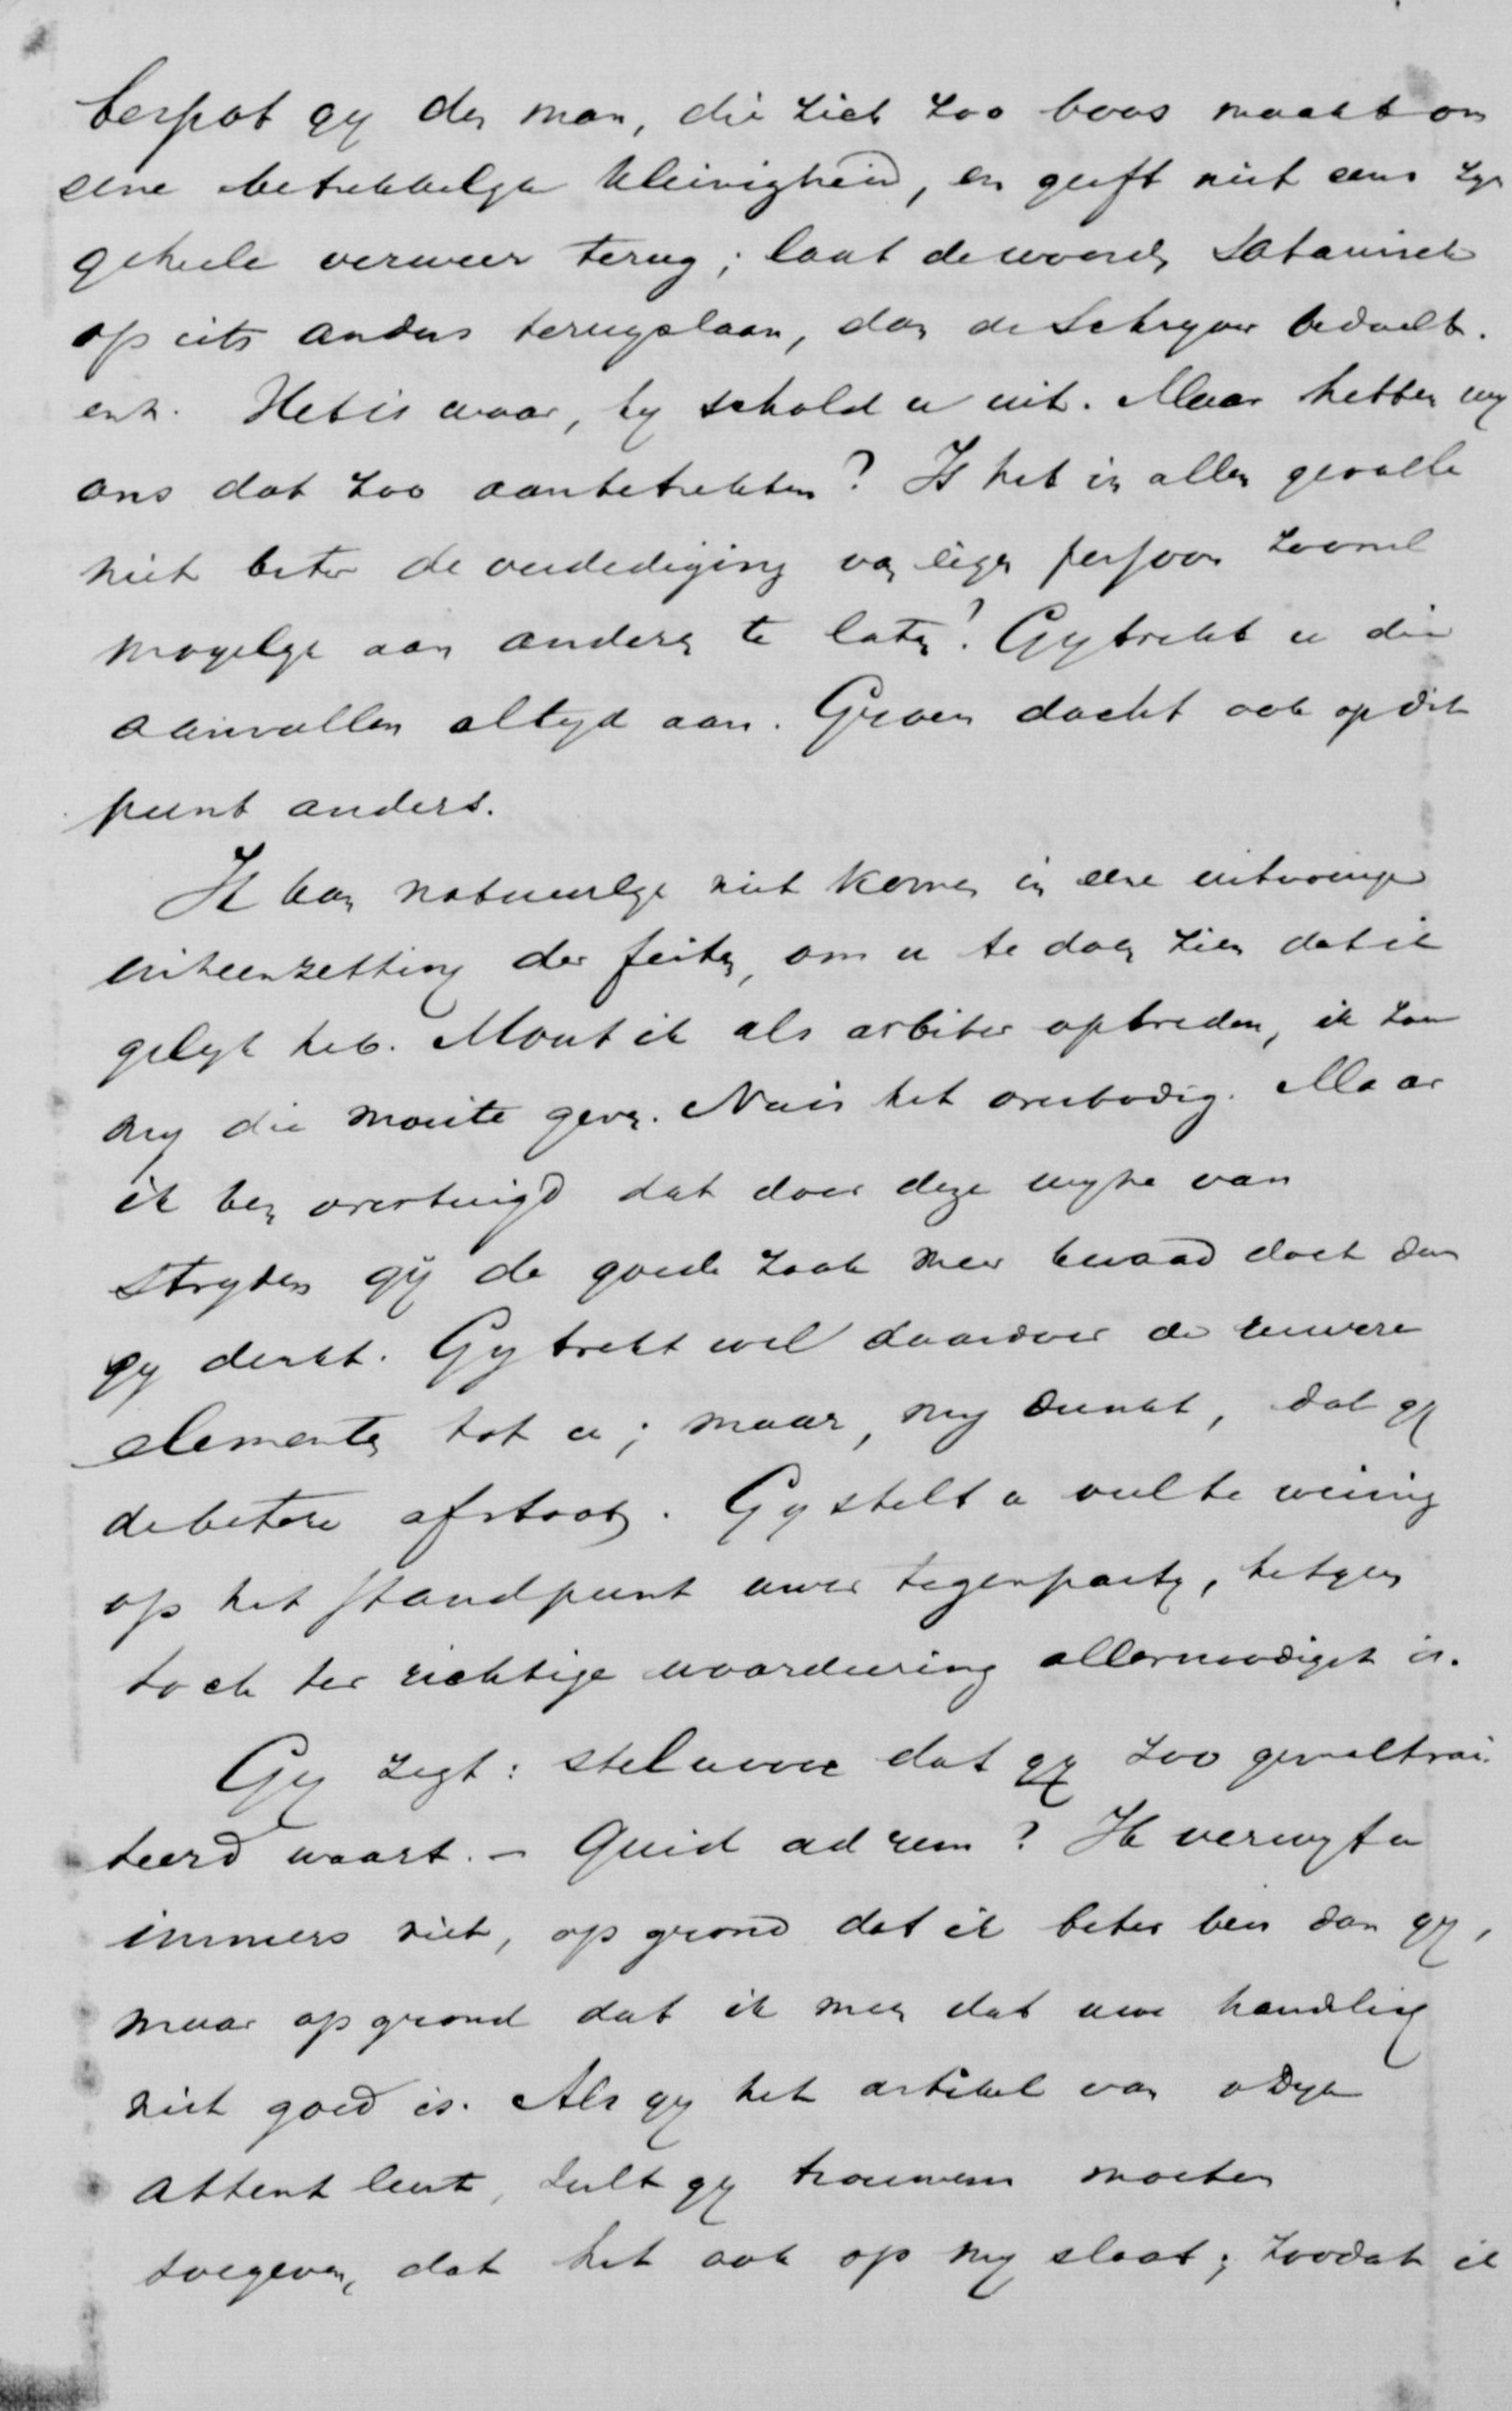 bespot gy den man, die zich zoo boos maakt om
eene betrekkelyke kleinigheid, en geeft niet eens zyn
geheele verweer terug; laat de woorden Satanisch
op iets anders terugslaan, dan de Schryver bedoelt.
enz. Het is waar, hy schold u uit. Maar hebben wy
ons dat zoo aantetrekken? Is het in allen gevalle
niet beter de verdediging van eigen persoon zooveel
mogelyk aan anderen te laten? Gy trekt u die
aanvallen altyd aan. Groen dacht ook op dit
punt anders.
Ik kan natuurlyk niet komen in eene uitvoerige
uiteenzetting der feiten, om u te doen zien dat ik
gelyk heb. Moest ik als arbiter optreden, ik zou
my die moeite geven. Nu is het overbodig. Maar
ik ben overtuigd dat door deze wyze van
stryden gy de goede zaak meer kwaad doet dan
gy denkt. Gy trekt wel daardoor de ruwere
elementen tot u; maar, my dunkt, dat gy
de betere afstoot. Gy stelt u veel te weinig
op het standpunt uwer tegenparty, hetgeen
toch ter richtige waardeering allernoodigst is.
Gy zegt: stel u voor dat gy zoo gemaltrai
teerd waart. - Quid ad rem? Ik verwyt u
immers niet, op grond dat ik beter ben dan gy,
maar op grond dat ik meen dat uwe handeling
niet goed is. Als gy het artikel van v Dyk
attent leest, zult gy trouwens moeten
toegeven, dat het ook op my slaat; zoodat ik